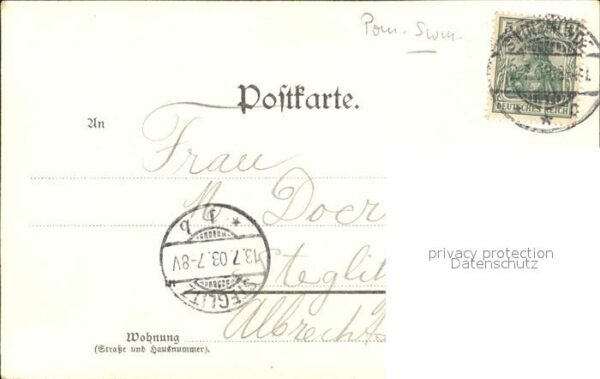 Pom. Swin.
5
SWINEMÜNDE
DEUTSCHES REICH
Postkarte.
An
Frau
M. Doer
Steglit
Albrecht
13.7.03.7-8V
STEGLITZ
Wohnung
(Straße und Hausnummer).
privacy protection
Datenschutz